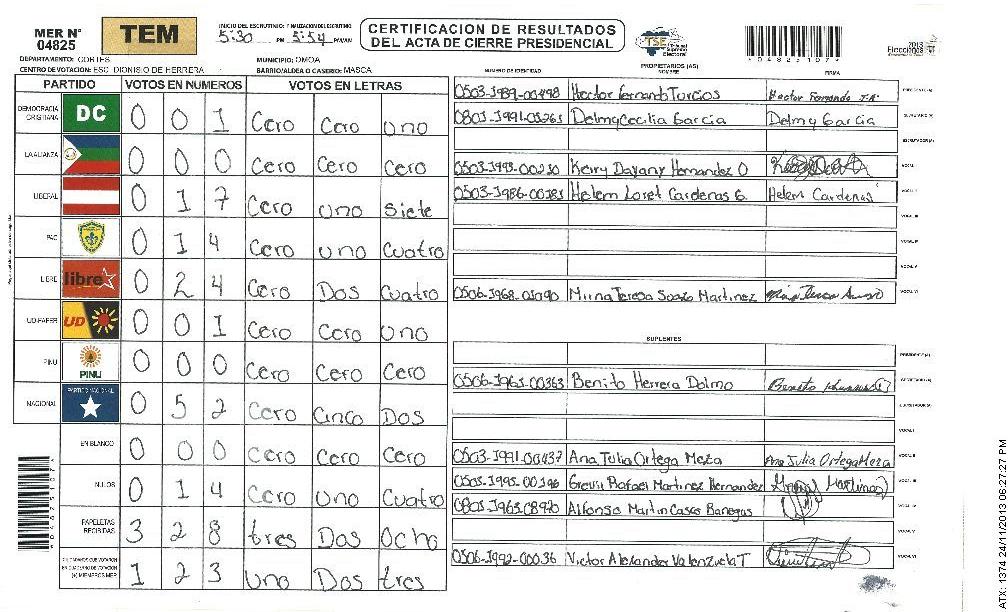 MER N° 04825
TEM
INICIO DEL ESCRUTINIO: 5:30 PM FINALIZACION DEL ESCRUTINIO 5:54 PM/AM
CERTIFICACION DE RESULTADOS DEL ACTA DE CIERRE PRESIDENCIAL
TSE Tribunal Supremo Electoral
2013 Elecciones
DEPARTAMENTO: CORTES
MUNICIPIO: OMOA
CENTRO DE VOTACION: ESC. DIONISIO DE HERRERA
BARRIO/ALDEA O CASERIO: MASCA
PARTIDO VOTOS EN NUMEROS VOTOS EN LETRAS
DEMOCRACIA CRISTIANA DC 0 0 1 Cero Cero uno
LA ALIANZA 0 0 0 Cero Cero Cero
LIBERAL 0 1 7 Cero uno Siete
PAC 0 1 4 Cero uno Cuatro
LIBRE libre 0 2 4 Cero Dos Cuatro
UD-FAPER UD 0 0 1 Cero Cero Uno
PINU PINU 0 0 0 Cero Cero Cero
NACIONAL PARTIDO NACIONAL 0 5 2 Cero Cinco Dos
EN BLANCO 0 0 0 Cero Cero Cero
NULOS 0 14 Cero Uno Cuatro
PAPELETAS RECIBIDAS 3 2 8 tres Dos Ocho
1 2 3 Uno Dos tres
NUMERO DE IDENTIDAD PROPIETARIOS (AS) NOMBRE FIRMA
0503-1989-00498 Hector Fernando Turcios Hector Fernando T.A. PRESIDENTE (A)
0801-1991-03263 Delmy Cecilia Garcia Delmy Garcia SECRETARIO (A)
ESCRUTADOR (A)
0503-1993-00230 Keiry Dayany Hernandez O VOCAL I
0503-1986-00383 Helem Loret Cardenas G. Helem Cardenas VOCAL II
VOCAL III
VOCAL IV
VOCAL V
0506-1968-01090 Mirna Teresa Suazo Martinez VOCAL VI
SUPLENTES
PRESIDENTE (A)
0506-1963-00363 Benito Herrera Dolmo SECRETARIO (A)
ESCRUTADOR (A)
VOCAL I
0503-1991-00437 Ana Julia Ortega Meza Ana Julia Ortega Meza VOCAL II
0503-1995-00396 Grevil Rafael Martinez Hernandez Martinez VOCAL III
0801-1963-08920 Alfonso Martin Casco Banegas VOCAL IV
VOCAL V
0506-1992-00036 Victor Alexander Valenzuela T VOCAL VI
ATX: 1374 24/11/2013 06:27:27 PM